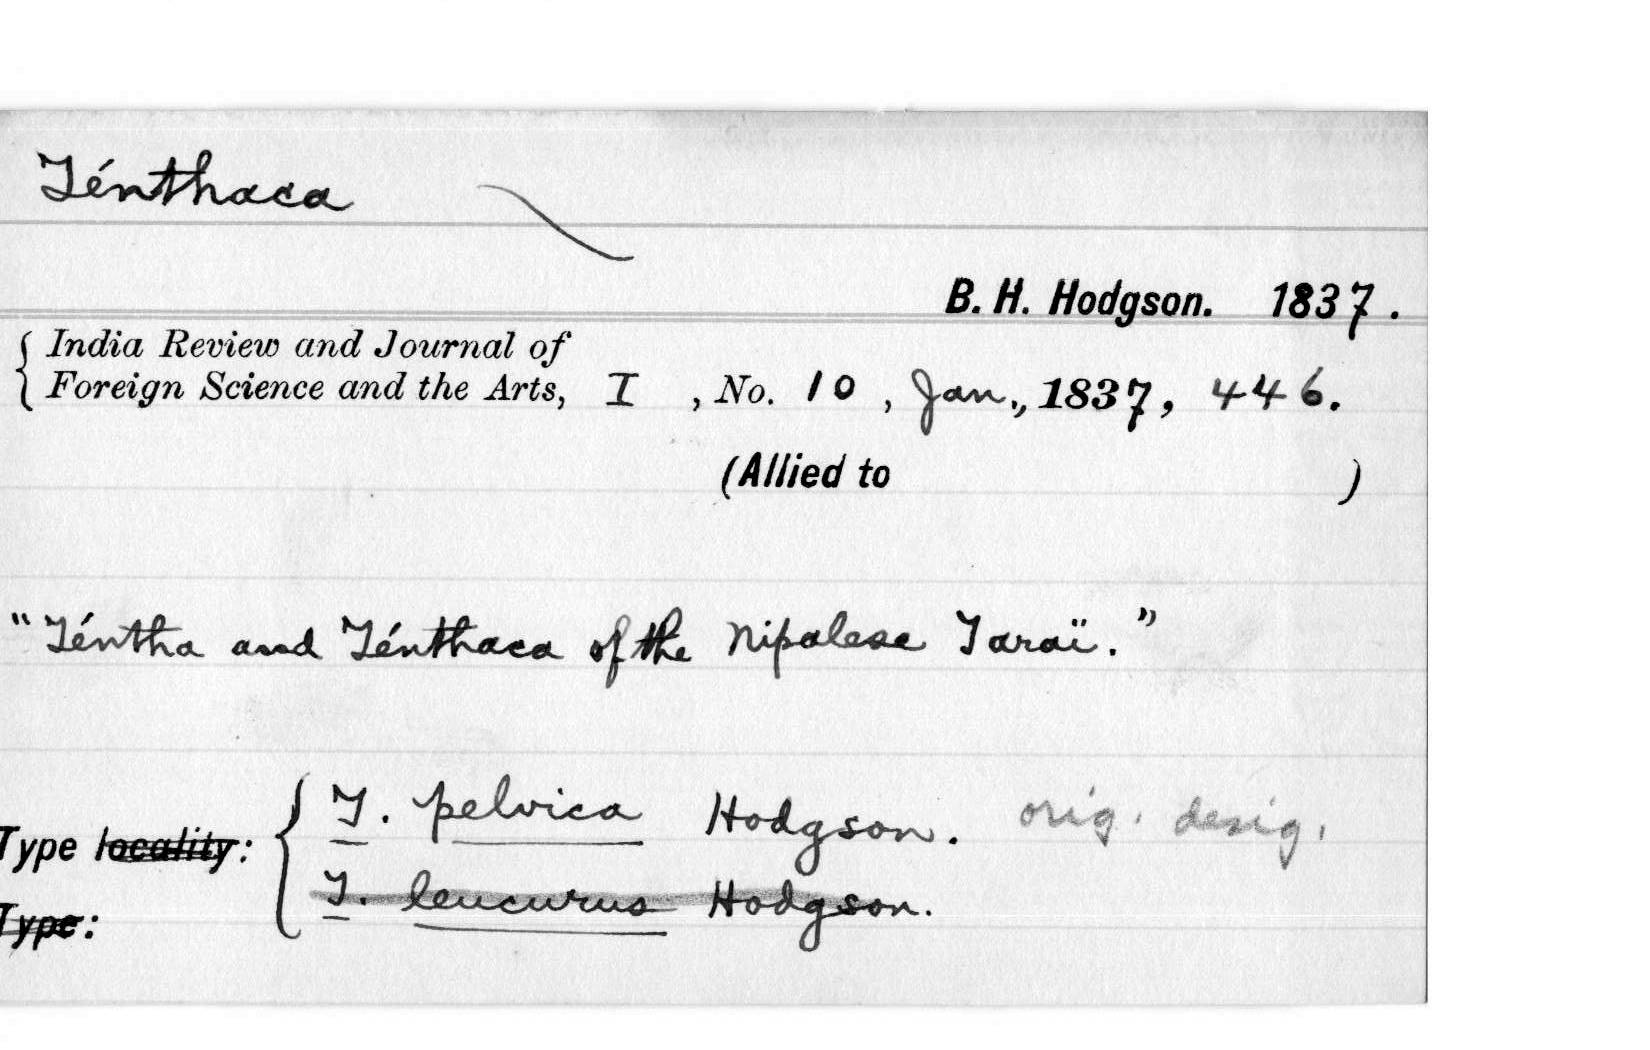 Ténthaca
B. H. Hodgson. 1837.
India Review and Journal of
Foreign Science and the Arts, I , No. 10 , Jan., 1837, 446.
(Allied to )
"Téntha and Ténthaca of the Nipalese Taraï."
Type locality: T. pelvica Hodgson. orig. desig.
Type: T. leucurus Hodgson.